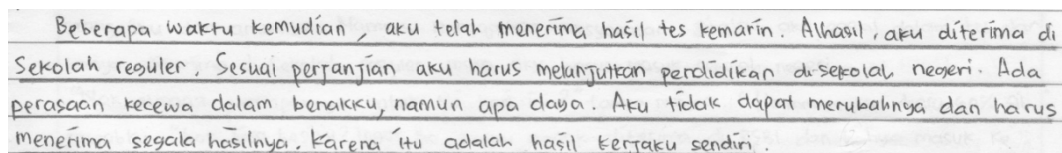 Beberapa waktu kemudian, aku telah menerima hasil tes kemarin. Alhasil, aku diterima di
Sekolah reguler. Sesuai perjanjian aku harus melanjutkan perdidikan di sekolah negeri. Ada
perasaan kecewa dalam benakku, namun apa daya. Aku tidak dapat merubahnya dan harus
menerima segala hasilnya. Karena itu adalah hasil kerjaku sendiri.